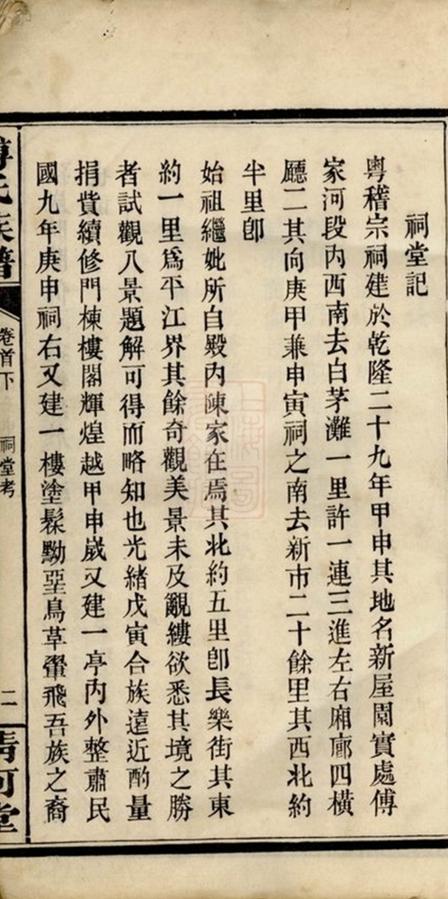 祠堂記
粵稽宗祠建於乾隆二十九年甲申其地名新屋園實處傅
家河段內西南去白茅灘一里許一連三進左右廂廊四橫
廳二其向庚甲兼申寅祠之南去新市二十餘里其西北約
半里卽
始祖繼妣所自殷內陳家在焉其北約五里卽長樂街其東
約一里爲平江界其餘奇觀美景未及覼縷欲悉其境之勝
者試觀八景題解可得而略知也光緒戊寅合族遠近酌量
捐貲續修門棟樓閣輝煌越甲申歲又建一亭內外整肅民
國九年庚申祠右又建一樓塗髹黝堊鳥革翬飛吾族之裔
傅氏族譜
卷首下
祠堂考
二
清河堂